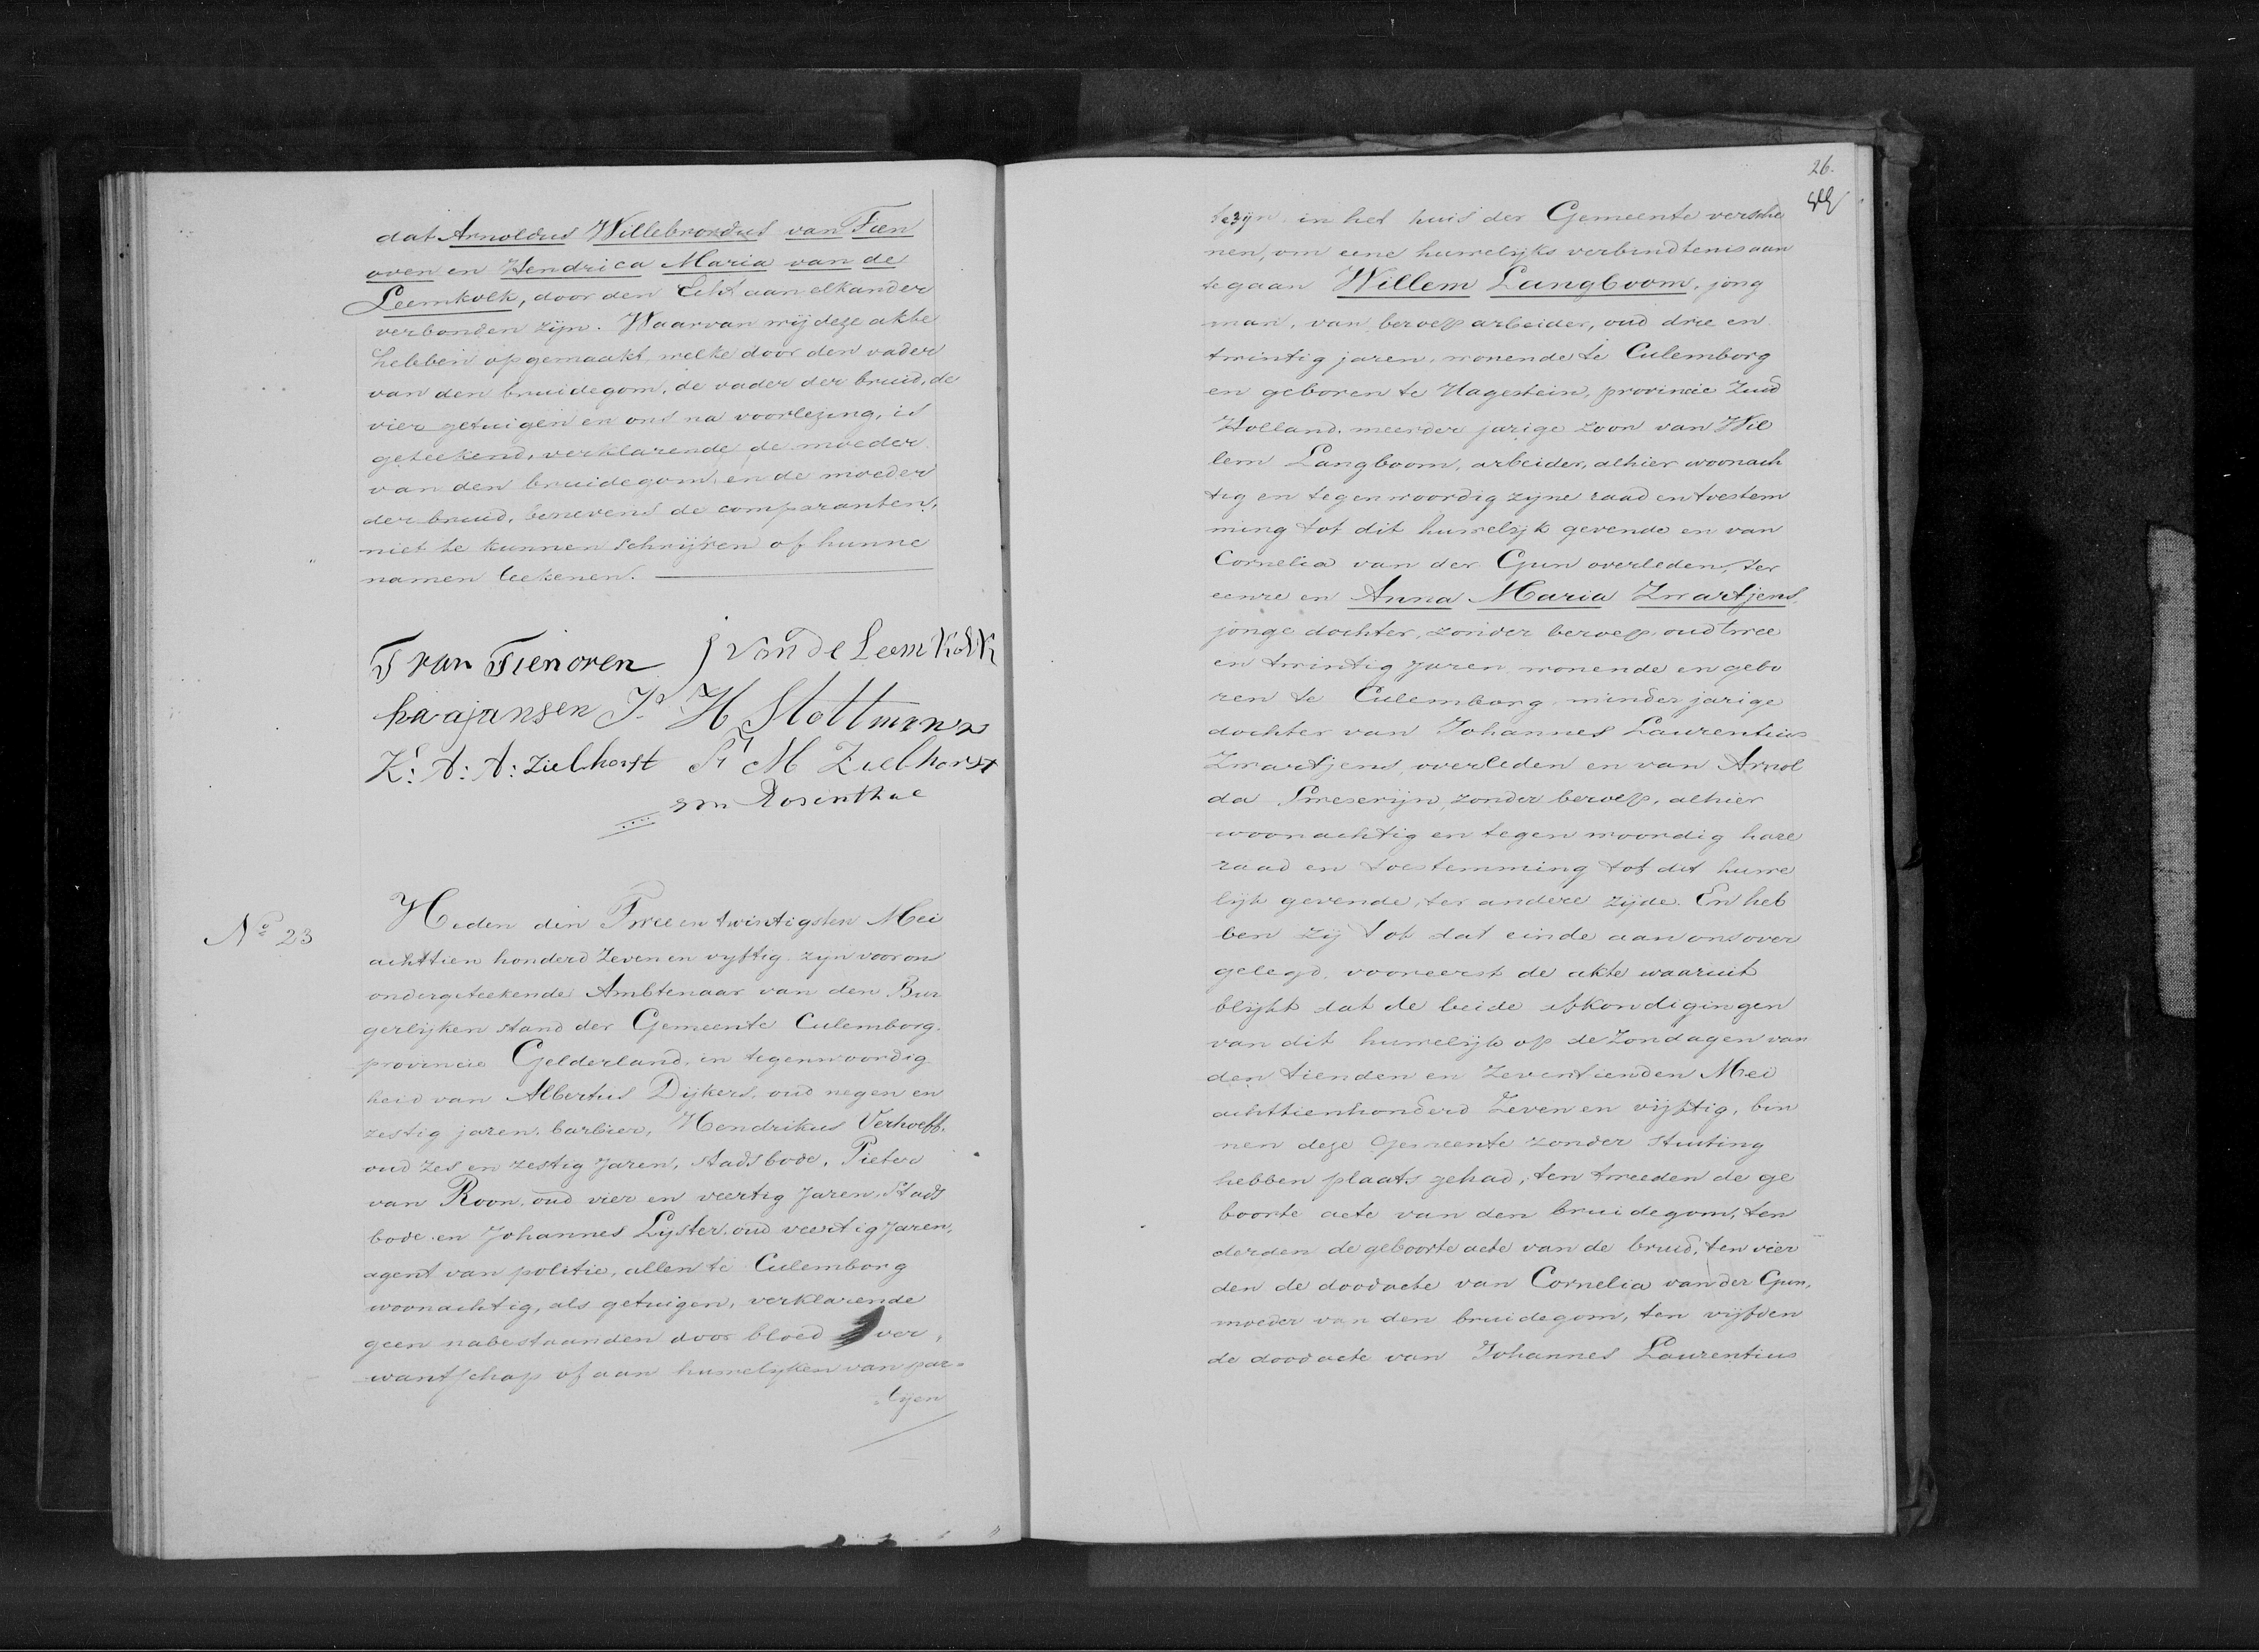 dat Arnoldus Willebrordus van Tien
oven en Hendrica Maria van de
Leemkolk, door den Echt aan elkander
verbonden zijn. Waarvan wij deze akte
hebben opgemaakt welke door den vader
van den bruidegom, de vader der bruid, de
vier getuigen en ons na voorlezing, is
geteekend, verklarende de moeder
van den bruidegom en de moeder
der bruid, benevens de comparanten,
niet te kunnen schrijven of hunne
namen teekenen.
T van Tienoven J van de Leemkolk
Jansen H Stottmann
K: A: A: Zielhorst M Zielhorst
Rosenthal
No 23
Heden den Twee en twintigsten Mei
achttien honderd Zeven en vyftig zyn voor ons
ondergeteekende Ambtenaar van den Bur
gerlijken stand der Gemeente Culemborg
provincie Gelderland, in tegenwoordig
heid van Albertus Dijkers, oud negen en
zestig jaren, barbier, Hendrikus Verhoeff,
oud zes en zestig Jaren, stadsbode, Pieter
van Roon, oud vier en veertig Jaren, Stads
bode en Johannes Lyster, oud veertig Jaren,
agent van politie, allen te Culemborg
woonachtig, als getuigen, verklarende
geen nabestaanden door bloed ver,
wantschap of aan huwelijken van par=
=tijen
26.
te zijn in het huis der Gemeente versche
nen, om eene huwelijks verbindtenis aan
te gaan Willem Langboom, jong
man, van beroep arbeider, oud drie en
twintig jaren, wonende te Culemborg
en geboren te Hagestein, provincie Zuid
Holland, meerder jarige zoon van Wil
lem Langboom, arbeider, alhier woonach
tig en tegenwoordig zyne raad en toestem
ming tot dit huwelijk gevende en van
Cornelia van der Gun overleden, ter
eenre en Anna Maria Zwartjens,
jonge dochter, zonder beroep oud twee
en twintig Jaren wonende en gebo
ren te Culemborg minder jarige
dochter van Johannes Laurentius
Zwartjens, overleden en van Arnol
da zonder beroep, alhier
woonachtig en tegenwoordig hare
raad en toestemming tot dit huwe
lijk gevende, ter andere zijde. En heb
ben zij tot dat einde aan ons over
gelegd, vooreerst de akte waaruit
blijkt dat de beide afkondigingen
van dit huwelijk op de Zondagen van
den tienden en Zeventienden Mei
achttienhonderd Zeven en vijftig, bin
nen deze Gemeente zonder stuiting
hebben plaats gehad, ten tweeden de ge
boorte acte van den bruidegom, ten
derden de geboorte acte van de bruid, ten vier
den de doodacte van Cornelia van der Gun,
moeder van den bruidegom, ten vijfden
de doodacte van Johannes Laurentius